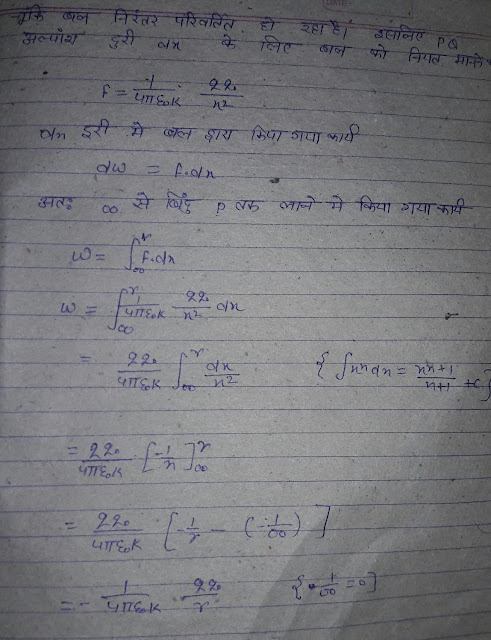 चूंकि बल निरंतर परिवर्तित हो रहा है। इसलिए PQ
अल्पांश दुरी dx के लिए बल को नियत माने
F = 1/4πε₀K qq₀/x²
dx दुरी मे बल द्वारा किया गया कार्य
dw = F.dx
अतः ∞ से बिंदु P तक लाने मे किया गया कार्य
W = ∫∞^r F.dx
W = ∫∞^r 1/4πε₀K qq₀/x² dx
= qq₀/4πε₀K ∫∞^r dx/x² { ∫xⁿdx = xⁿ⁺¹/n+1 +c }
= qq₀/4πε₀K [-1/x]∞^r
= qq₀/4πε₀K [-1/r - (-1/∞)]
= - 1/4πε₀K qq₀/r {1/∞ = 0]